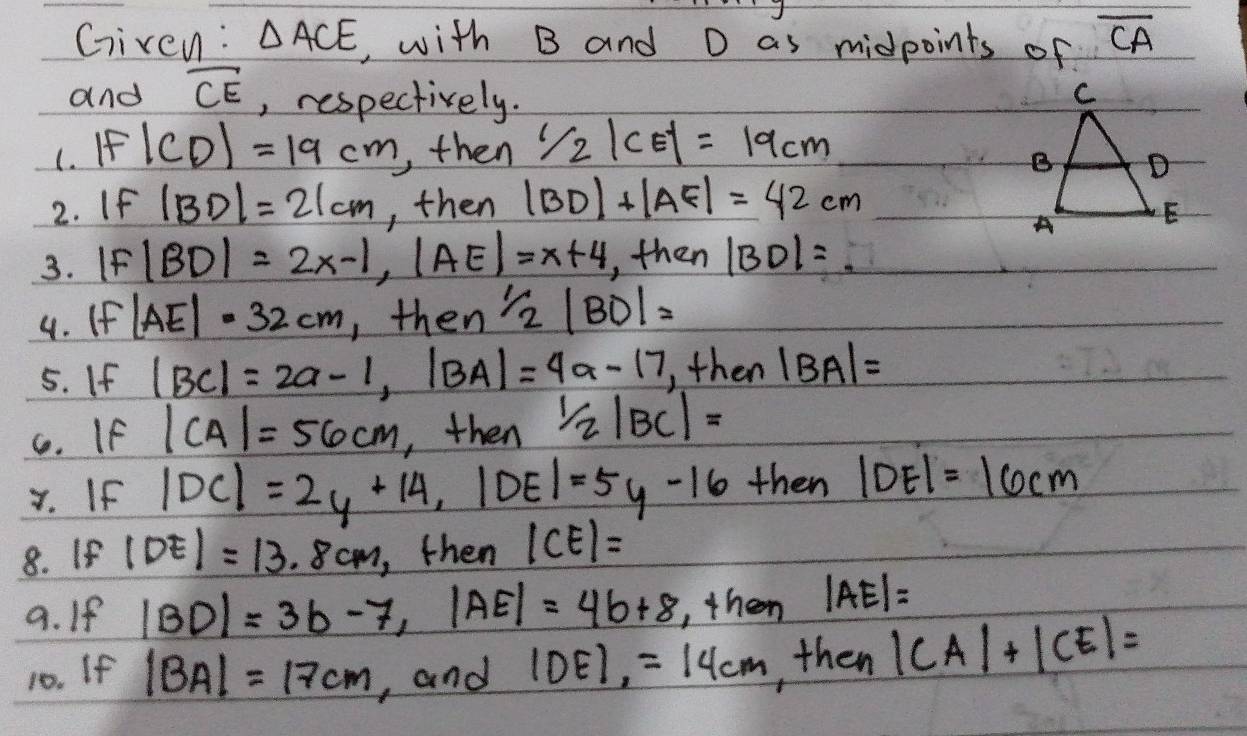 Given: ΔACE, with B and D as midpoints of CA
and CE, respectively.
1. If |CD| = 19 cm, then 1/2 |CE| = 19cm
2. If |BD| = 21cm, then |BD| + |AE| = 42 cm
3. If |BD| = 2x-1, |AE| = x+4, then |BD| =
4. If |AE| = 32cm, then 1/2 |BD| =
5. If |BC| = 2a-1, |BA| = 4a-17, then |BA| =
6. If |CA| = 56cm, then 1/2 |BC| =
7. If |DC| = 2y + 14, |DE| = 5y -16 then |DE| = 16cm
8. If |DE| = 13.8cm, then |CE| =
9. If |BD| = 3b-7, |AE| = 4b+8, then |AE| =
10. If |BA| = 17cm, and |DE|, = 14cm, then |CA| + |CE| =
C
B D
A E